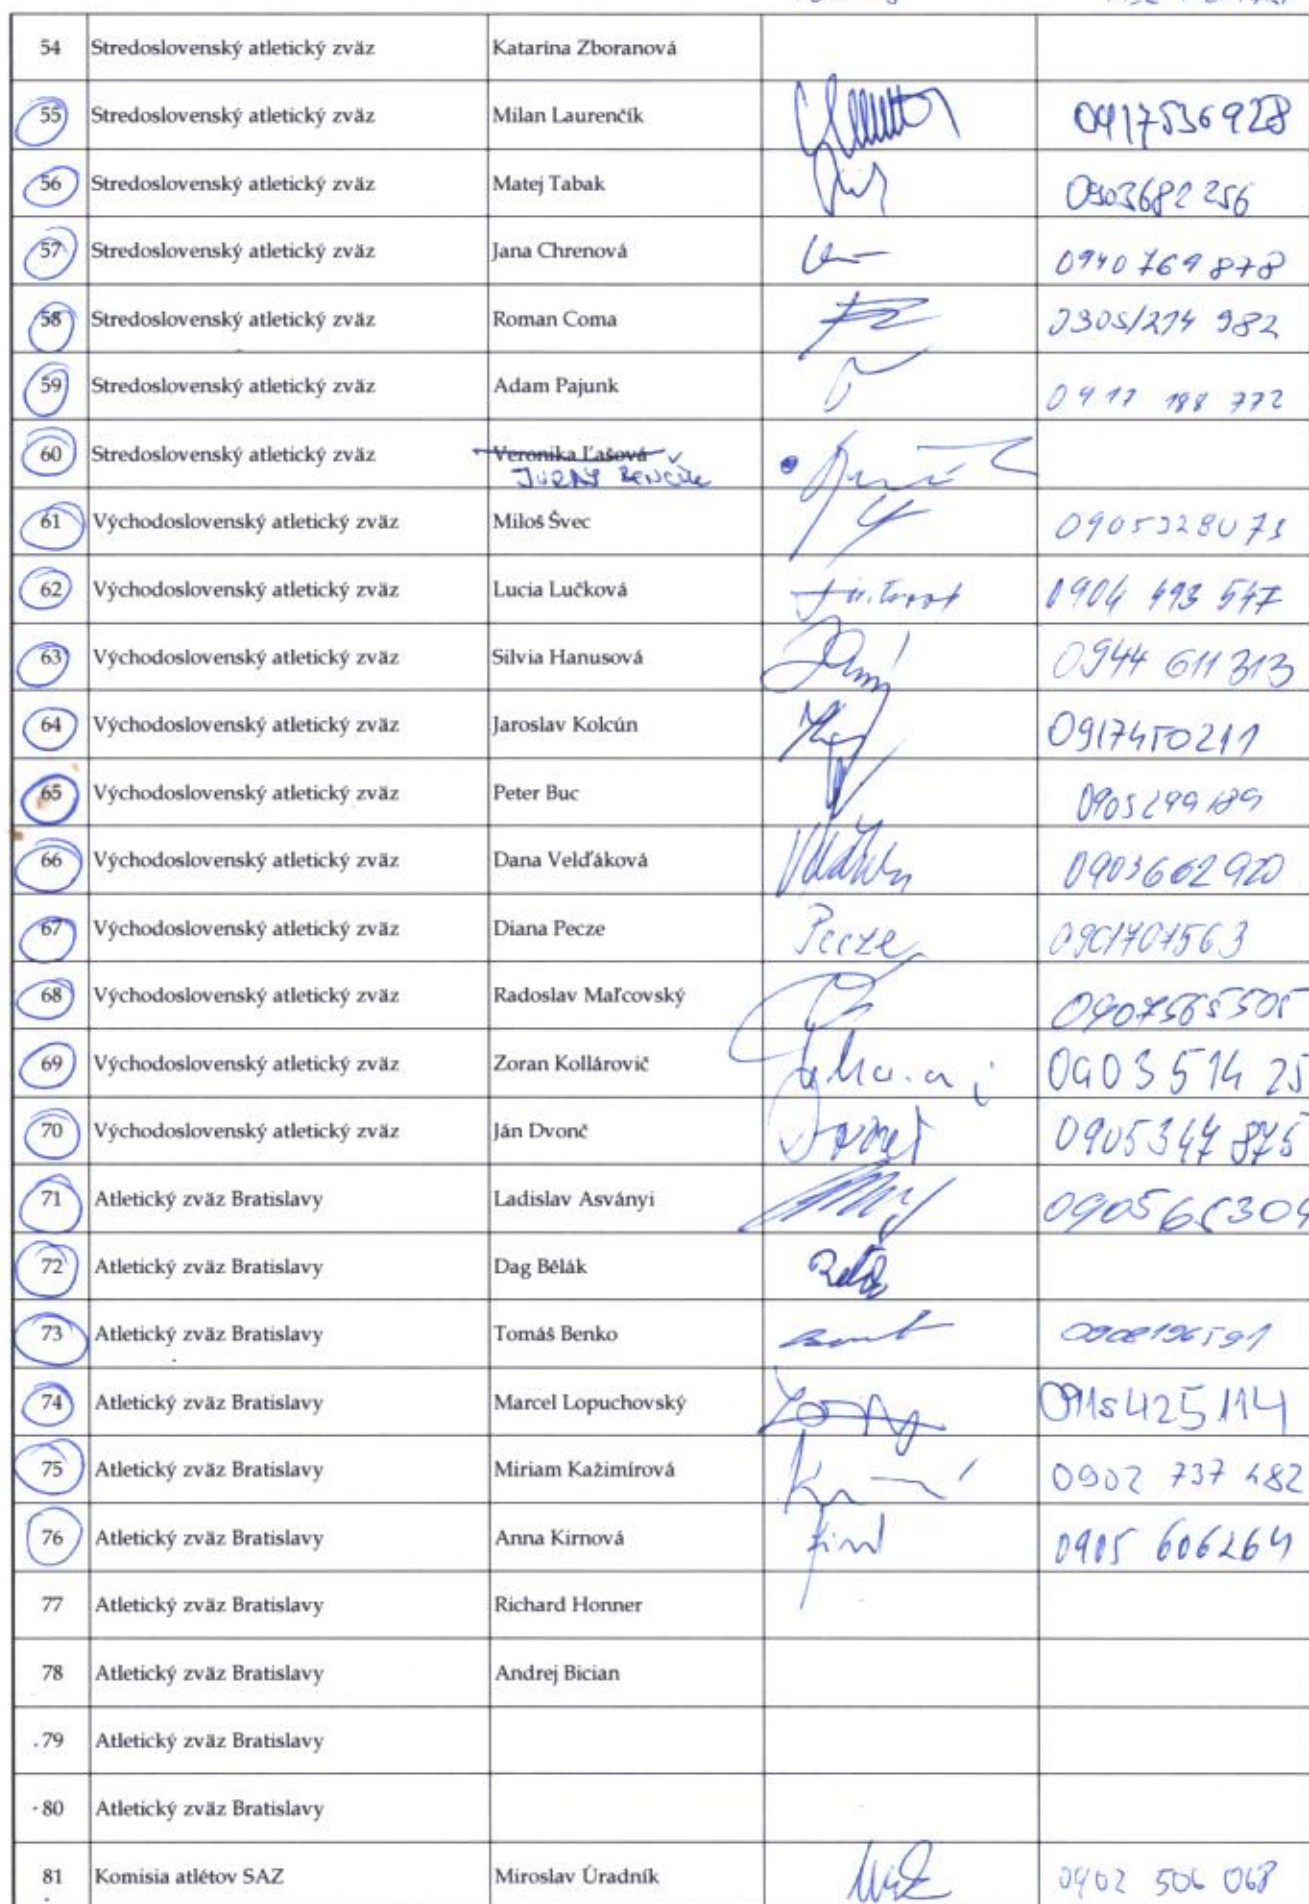 54 Stredoslovenský atletický zväz Katarína Zboranová
55 Stredoslovenský atletický zväz Milan Laurenčík 0917536928
56 Stredoslovenský atletický zväz Matej Tabak 0903682256
57 Stredoslovenský atletický zväz Jana Chrenová 0940 769 878
58 Stredoslovenský atletický zväz Roman Coma 0905/214 982
59 Stredoslovenský atletický zväz Adam Pajunk 0911 188 772
60 Stredoslovenský atletický zväz Veronika Ľašová
JURAJ BENČÍK
61 Východoslovenský atletický zväz Miloš Švec
62 Východoslovenský atletický zväz Lucia Lučková 0904 493 547
63 Východoslovenský atletický zväz Silvia Hanusová 0944 611 313
64 Východoslovenský atletický zväz Jaroslav Kolcún 0917450211
65 Východoslovenský atletický zväz Peter Buc 0905299189
66 Východoslovenský atletický zväz Dana Velďáková 0903602920
67 Východoslovenský atletický zväz Diana Pecze Pecze 0901701563
68 Východoslovenský atletický zväz Radoslav Maľcovský 0907565505
69 Východoslovenský atletický zväz Zoran Kollárovič 0903 514 25
70 Východoslovenský atletický zväz Ján Dvonč 0905 347 875
71 Atletický zväz Bratislavy Ladislav Asványi
72 Atletický zväz Bratislavy Dag Bělák
73 Atletický zväz Bratislavy Tomáš Benko 0908196591
74 Atletický zväz Bratislavy Marcel Lopuchovský 0915425114
75 Atletický zväz Bratislavy Miriam Kažimírová 0902 737 482
76 Atletický zväz Bratislavy Anna Kirnová 0905 606264
77 Atletický zväz Bratislavy Richard Honner
78 Atletický zväz Bratislavy Andrej Bician
79 Atletický zväz Bratislavy
80 Atletický zväz Bratislavy
81 Komisia atlétov SAZ Miroslav Úradník 0902 506 068